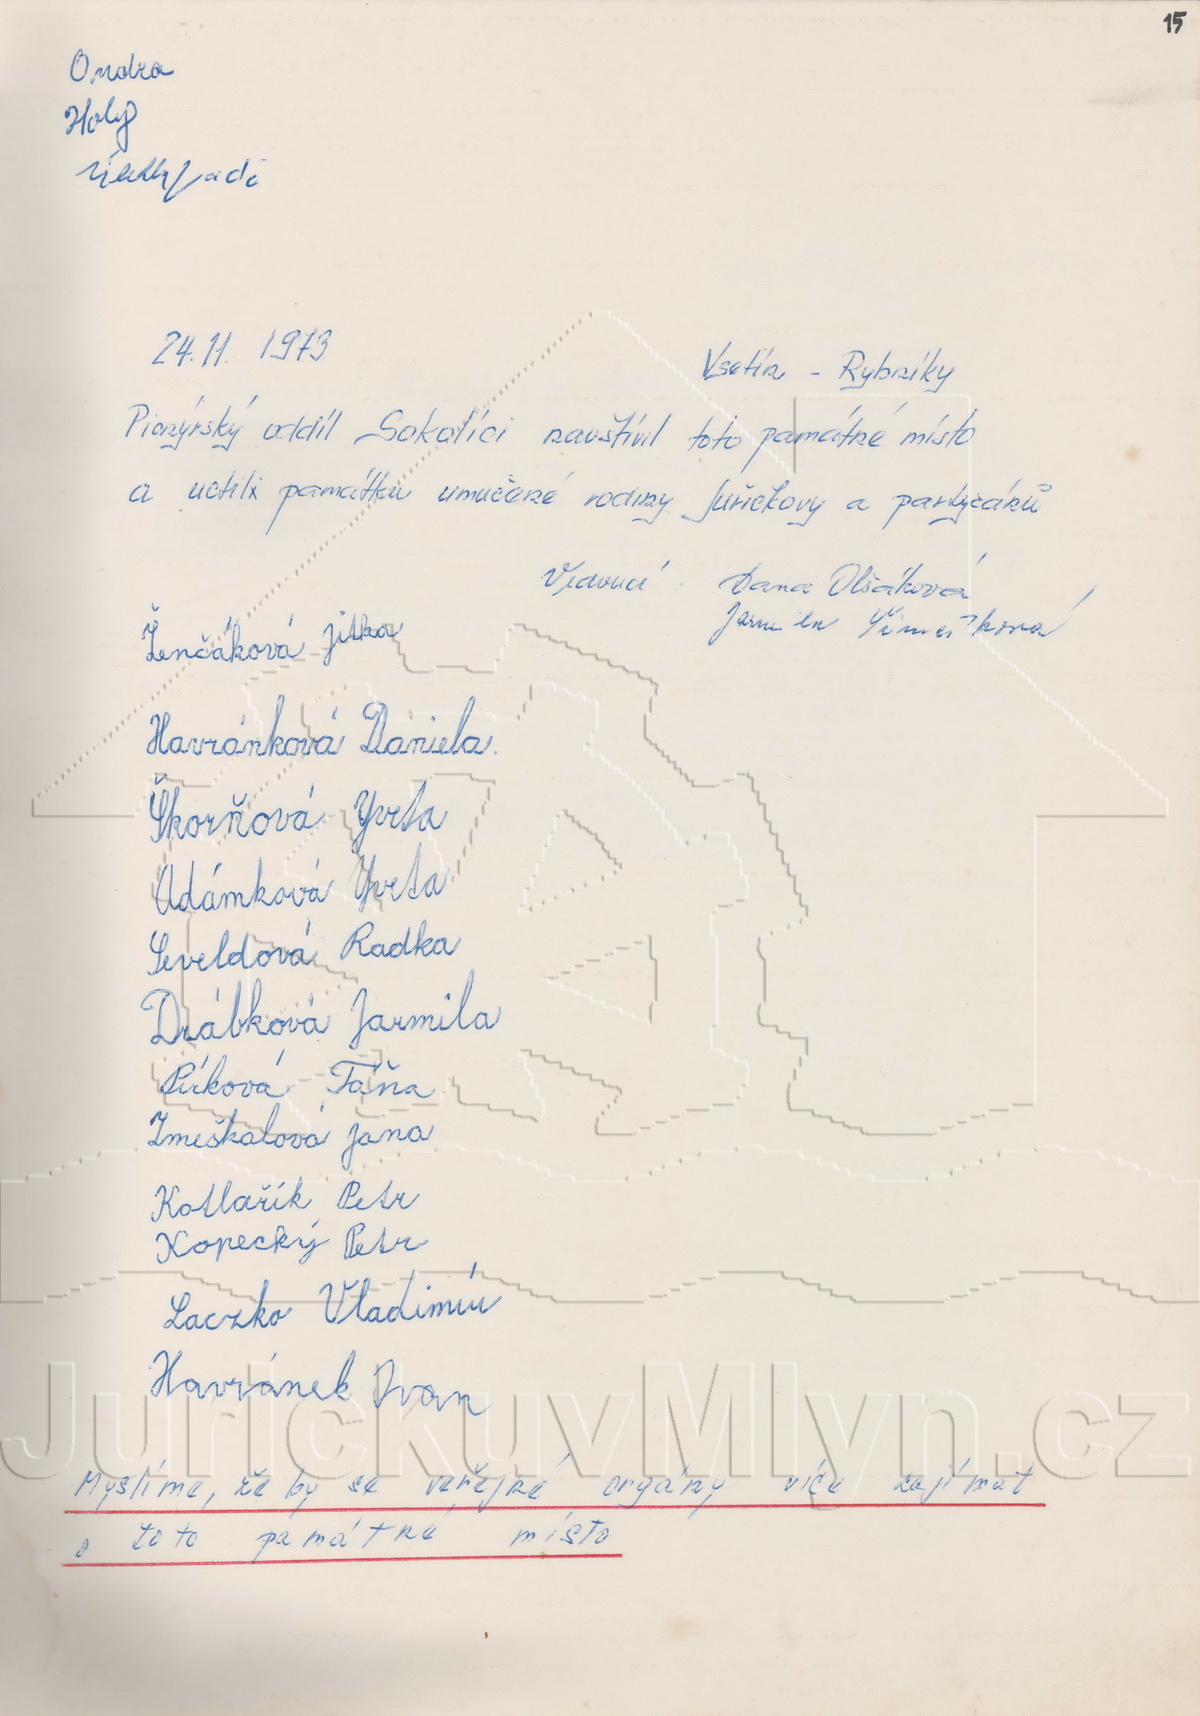 15
Ondra
Holy
24.11. 1973
Vsetín - Rybníky
Pionýrský oddíl Sokolíci navštívil toto památné místo
a uctili památku umučené rodiny Juříčkovy a partyzánů
Vedoucí: Dana Olšáková
Ženčáková Jitka
Havránková Daniela.
Škorňová Yveta
Adámková Yveta
Seveldová Radka
Drábková Jarmila
Pírková Táňa
Zmeškalová Jana
Kotlařík Petr
Kopecký Petr
Laczko Vladimír
Havránek Ivan
JurickuvMlyn.cz
Myslíme, že by se veřejné orgány více zajímat
o toto památné místo